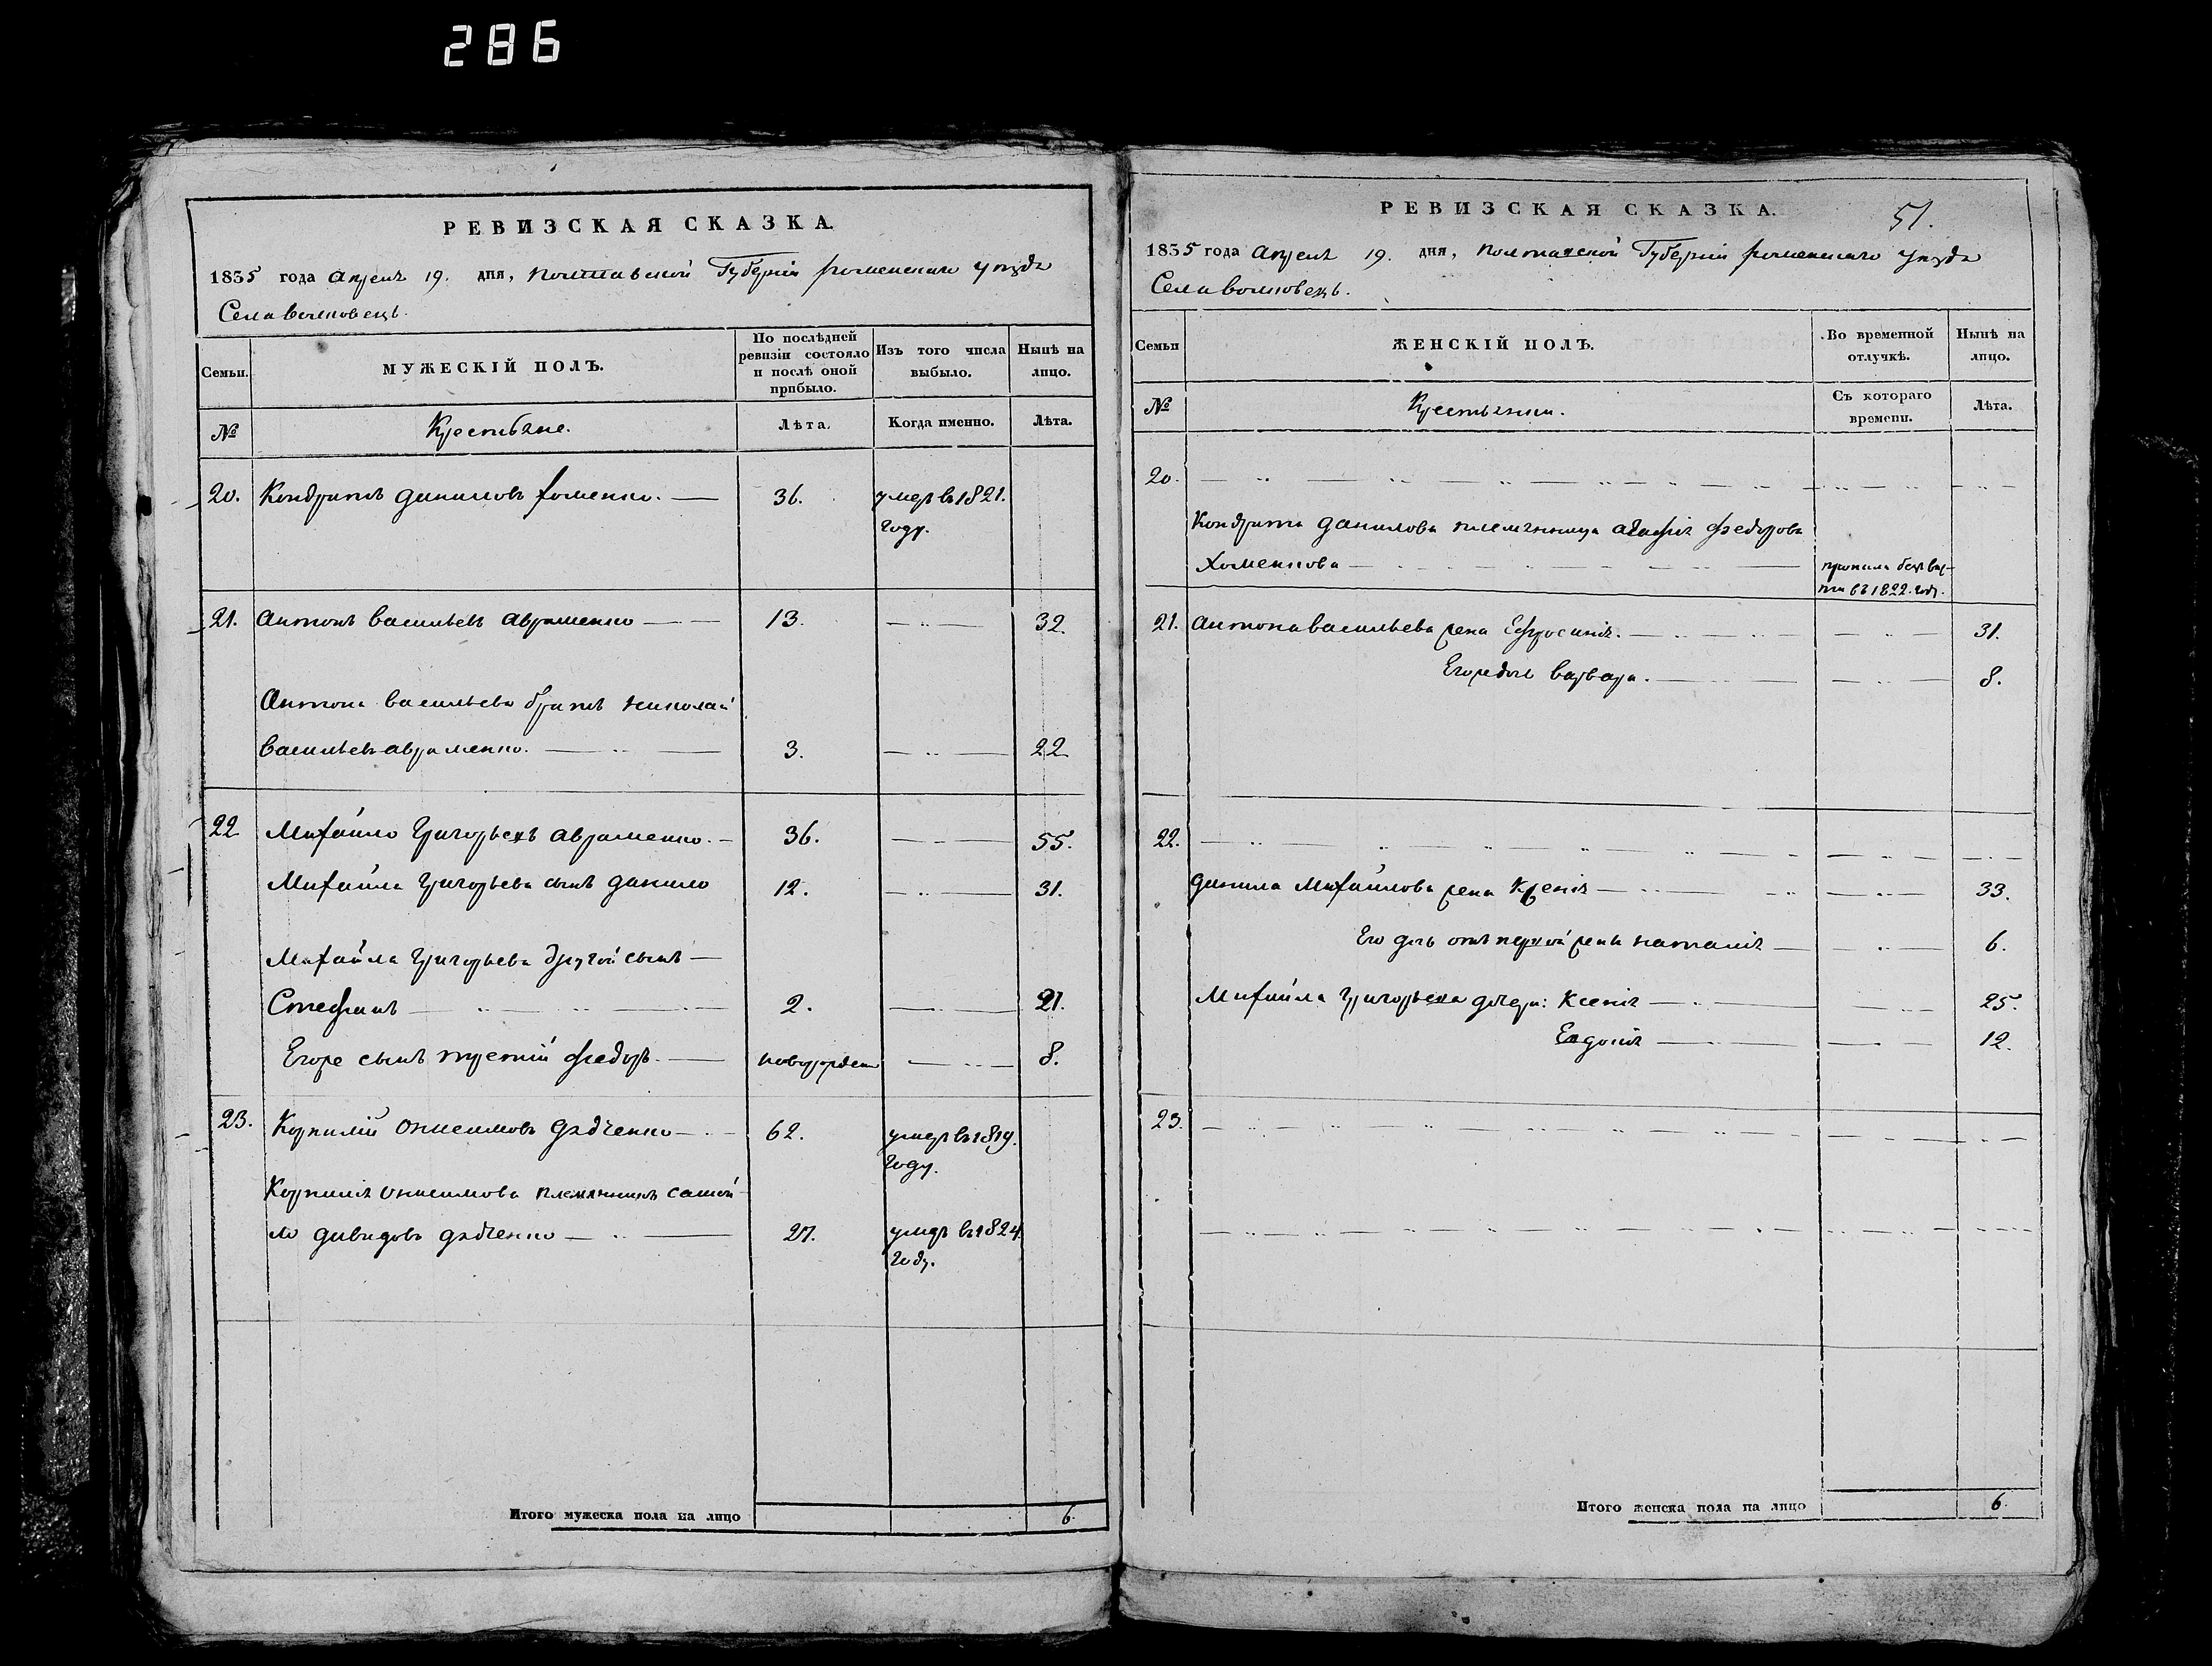 286
РЕВИЗСКАЯ СКАЗКА.
1835 года апреля 19. дня, полтавской Губерніи роменского уезда
Села волковець.
Семьи.
МУЖЕСКІЙ ПОЛЪ.
По послѣдней ревизіи состояло и послѣ оной прибыло.
Изъ того числа выбыло.
Нынѣ на лицо.
№
Крестьяне.
Лѣта.
Когда именно.
Лѣта.
20. Кондратъ даниловъ хоменко. — 36. умеръ въ 1821.
году.
21. Антонъ васильевъ авраменко — — 13. — „ — 32.
Антона васильева братъ николай
васильевъ авраменко. — „ — 3. — „ — 22
22 Михайло Григорьевъ авраменко. — 36. — „ — 55.
Михайла Григорьева сынъ данило 12. — „ — 31.
Михайла Григорьева другой сынъ —
Стефанъ — „ — „ — 2. — „ — 21.
Егоже сынъ третій федоръ. — новорожден — „ — 8.
23. Корнилій онисимовъ дядченко — „ — 62. умеръ въ 1819.
году.
Корнилія онисимова племянникъ самой
ло давидовъ дядченко — „ — 27. умеръ въ 1824.
году.
Итого мужеска пола на лицо 6.
РЕВИЗСКАЯ СКАЗКА.
51.
1835 года апреля 19. дня, полтавской Губерніи роменского уезда
Села волковець.
Семьи
ЖЕНСКІЙ ПОЛЪ.
Во временной отлучкѣ.
Нынѣ на лицо.
№
Крестьянки.
Съ котораго времени.
Лѣта.
20. — „ — „ — „ — „ — „ —
Кондрата данилова племянница агафия федорова
Хоменкова — пропала безъ вес-
ти въ 1822. году.
21. антона васильева жена Ефросинія. — „ — „ — 31.
Егоже дочь варвара. — „ — 8.
22. — „ — „ — „ — „ — „ —
данила Михайлова жена Ксенія — „ — „ — 33.
Его дочь отъ первой жены наталія — „ — 6.
Михайла Григорьева дочери: Ксенія — „ — 25.
Евдокія — „ — 12.
23. — „ — „ — „ — „ — „ —
— „ — „ — „ — „ — „ —
Итого женска пола на лицо 6.